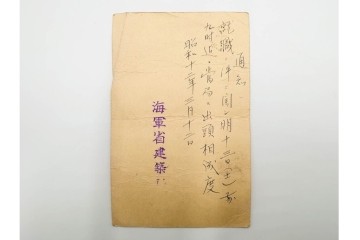 通知
就職ノ件ニ関シ明十三日(土)午前
九時迄ニ當局ニ出頭相成度
昭和十二年三月十二日
海軍省建築